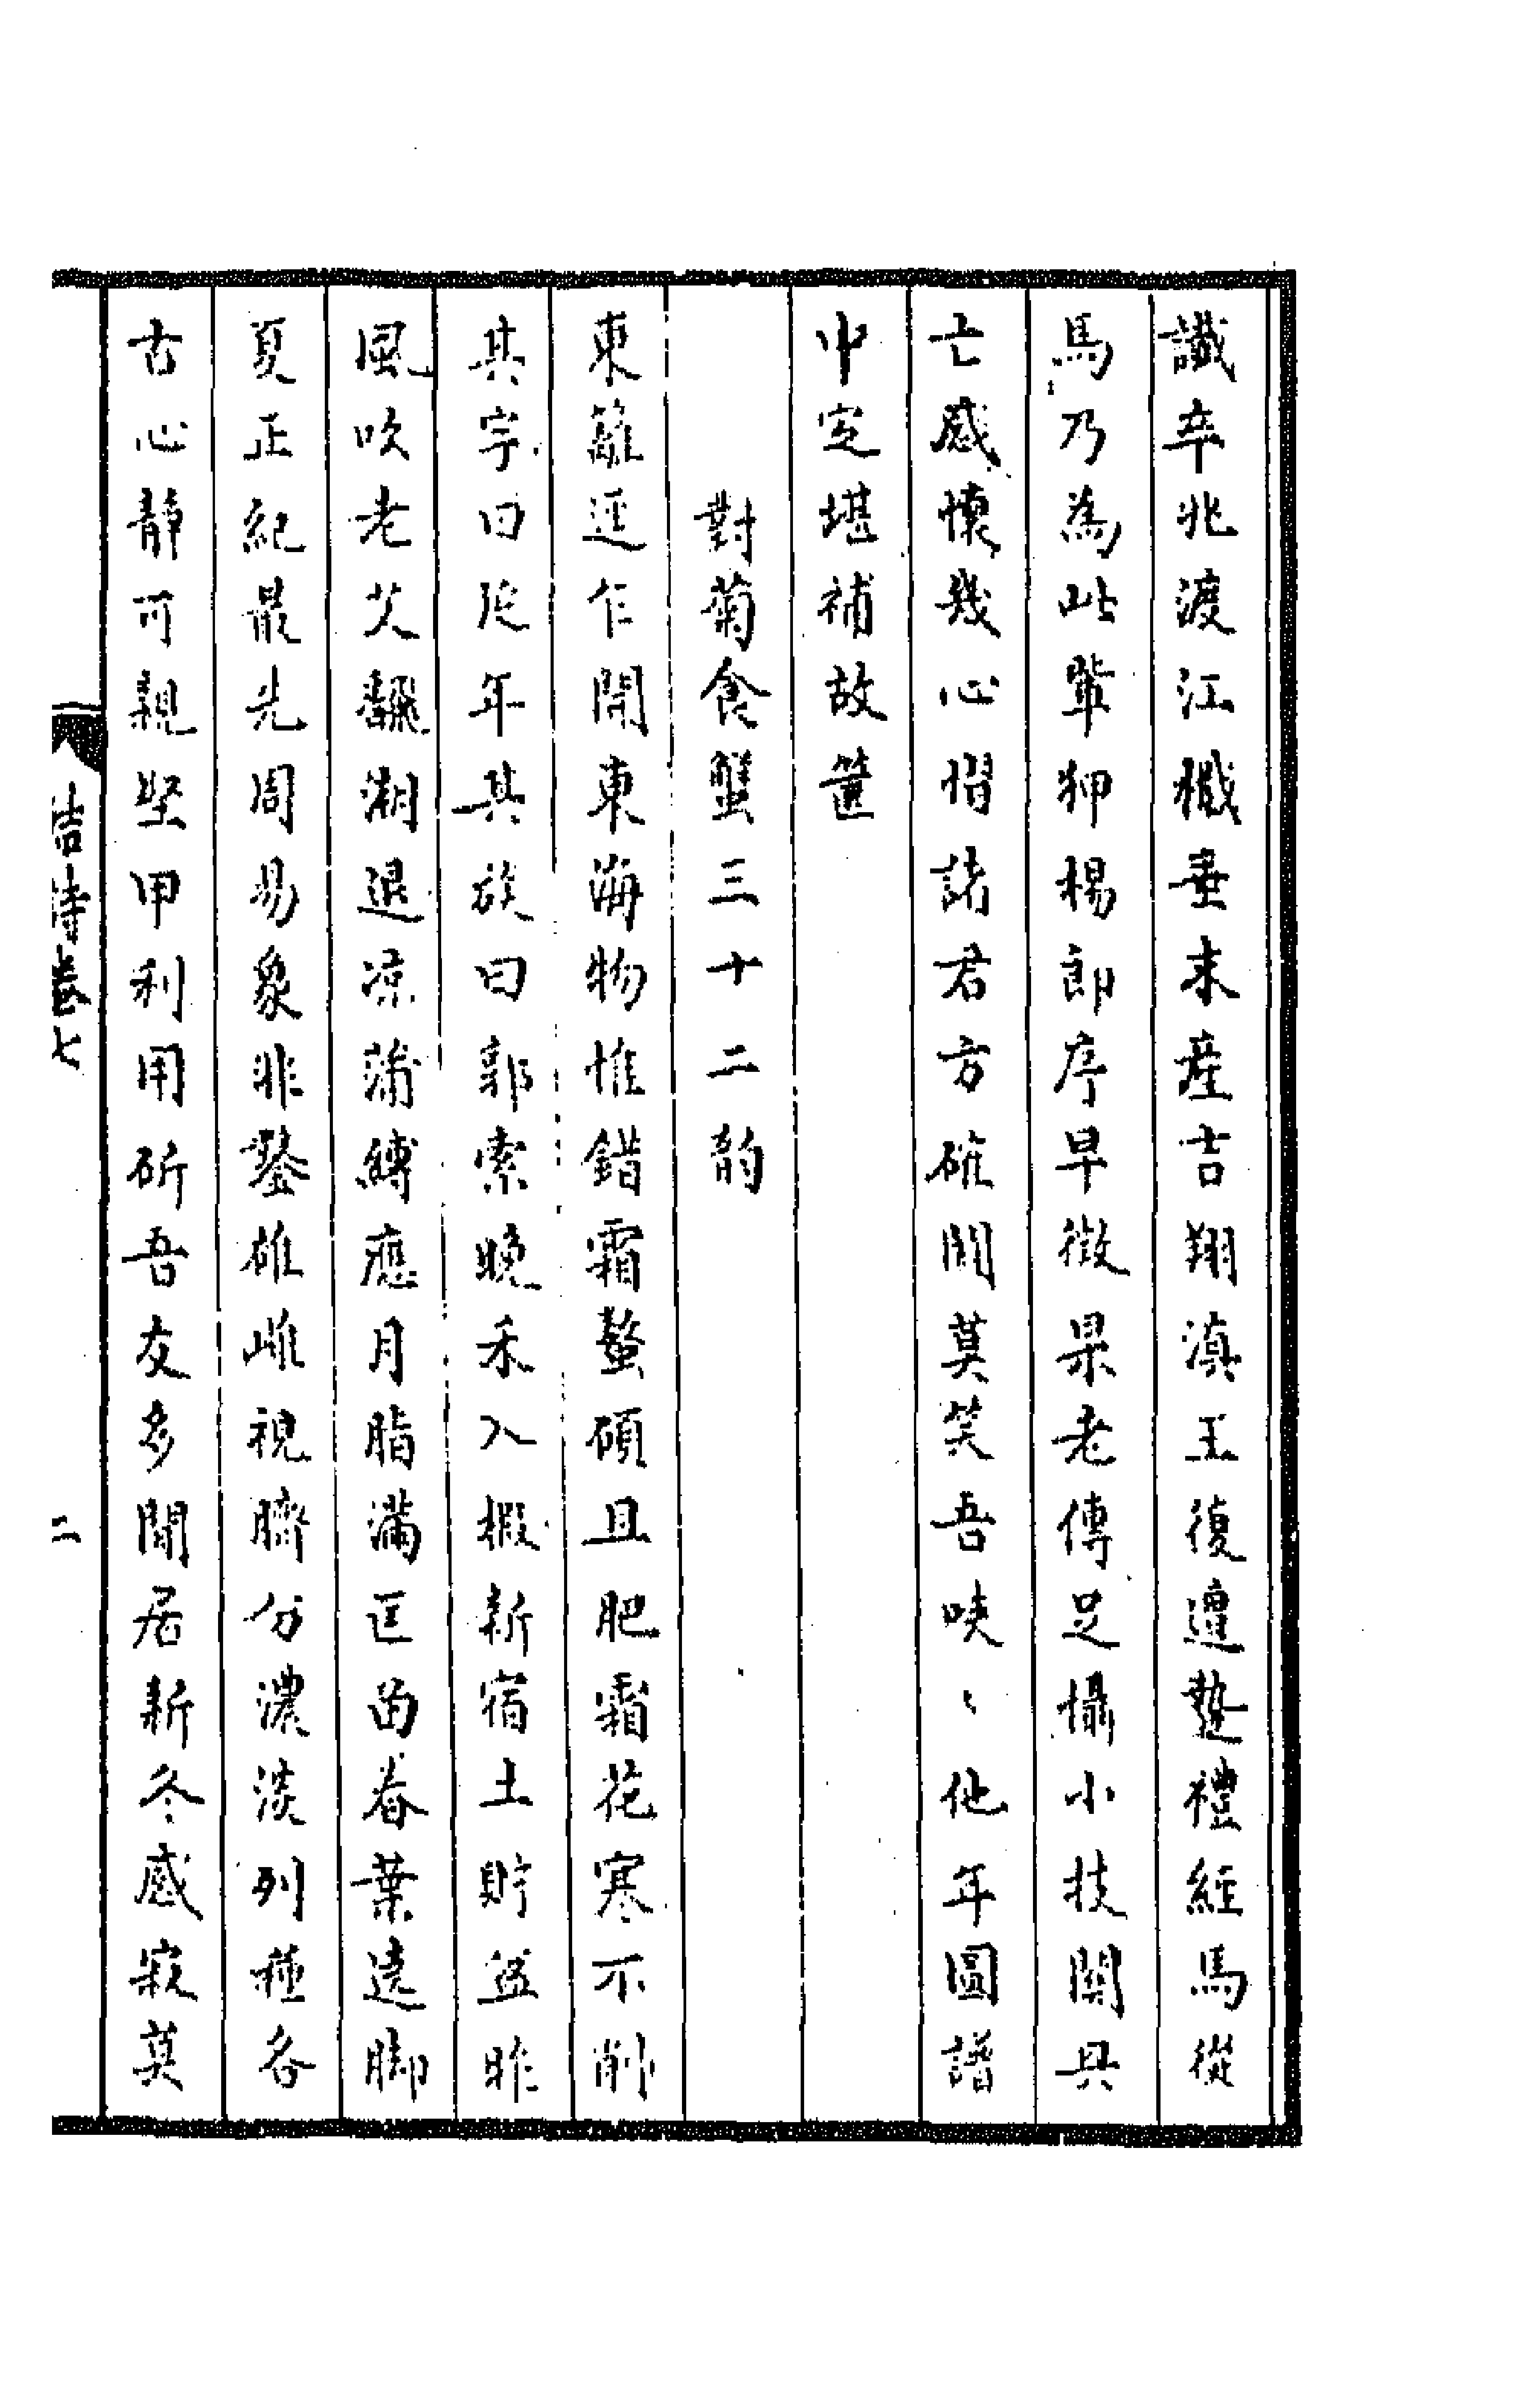 讖卒兆渡江檝垂来産吉翔滇王復遭蹔禮經馬從
馬乃為此輩狎楊郎序早徵果老傳足攝小技關興
亡感懷幾心慴諸君方碓閗莫笑吾唊丶他年圖譜
中定堪補故篋
對菊食蟹三十二韵
東籬逕乍開東海物惟錯霜螯碩且肥霜花寒不削
其字曰延年其族曰郭索晚禾入椴新宿土貯盆昨
風吹老艾飜潮退凉蒲縛應月脂滿匡曲春葉遶脚
夏正紀最先周易象非鑿雄雌視臍分濃淡列種各
古心靜可親堅甲利用斫吾友多閒居新冬感寂莫
詰詩卷七
二